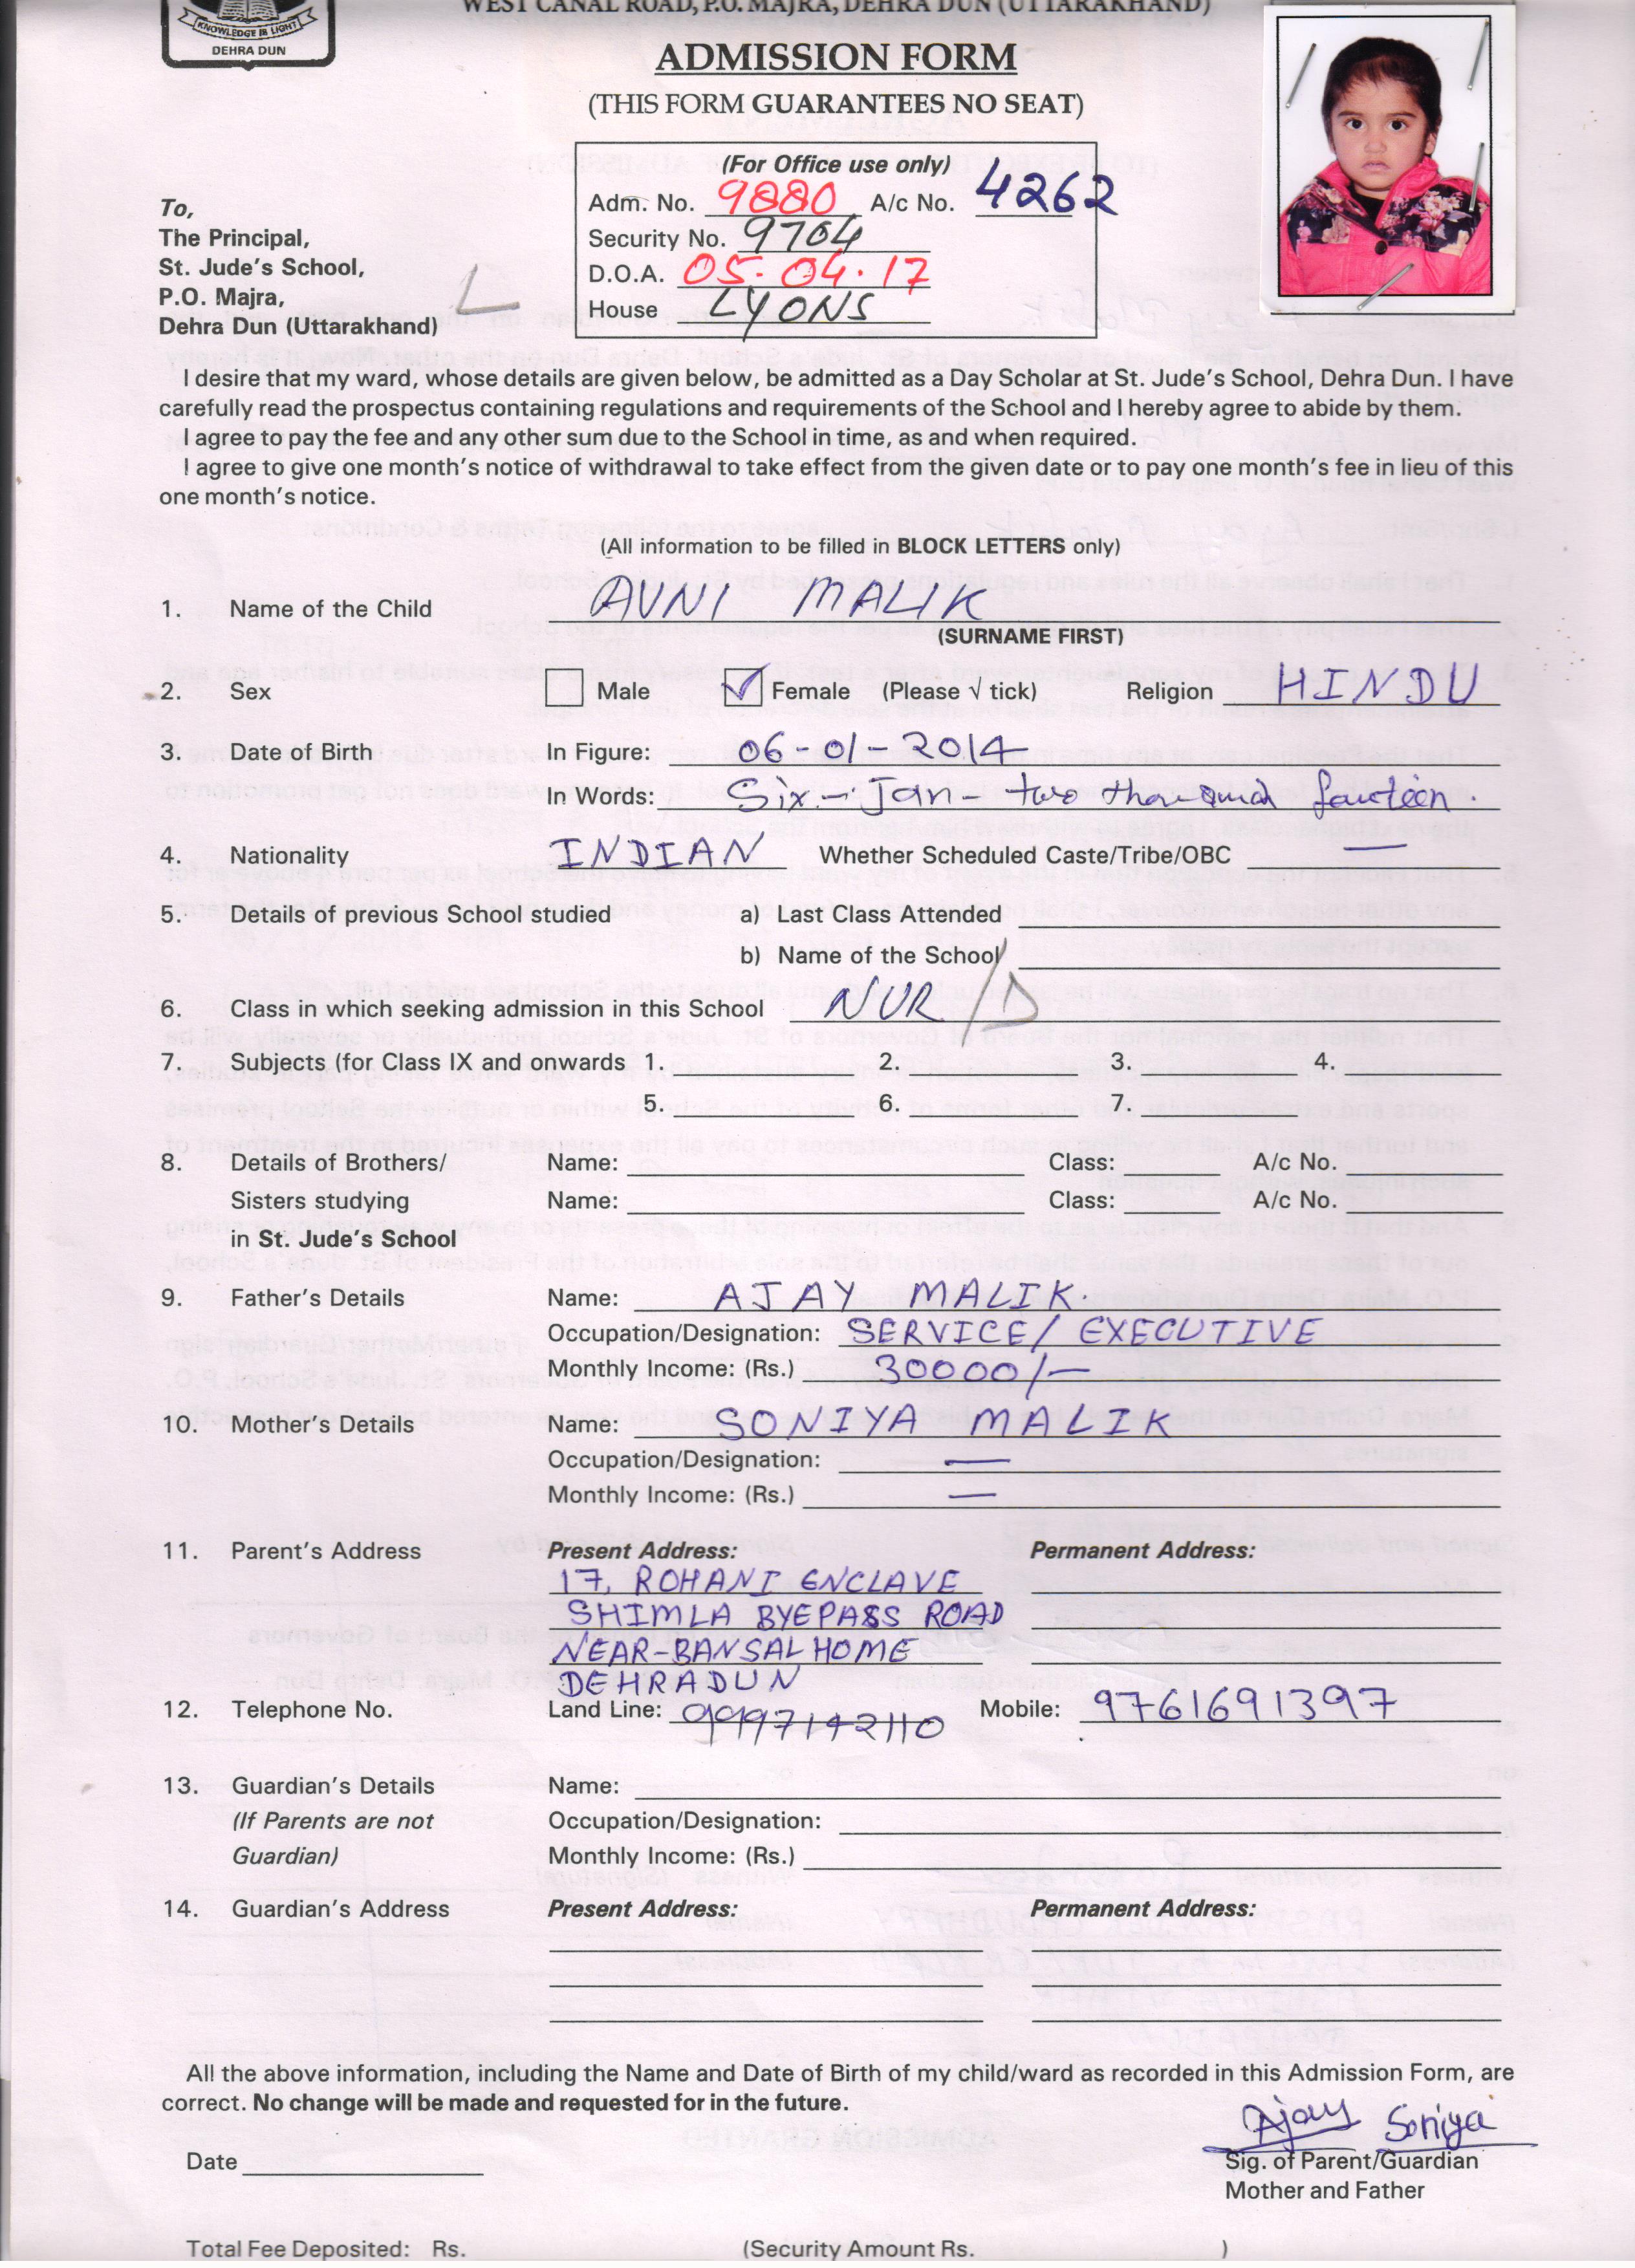 WEST CANAL ROAD, P.O. MAJRA, DEHRA DUN (UTTARAKHAND)
KNOWLEDGE IS LIGHT
DEHRA DUN
ADMISSION FORM
(THIS FORM GUARANTEES NO SEAT)
(For Office use only)
Adm. No. 9880 A/c No. 4262
Security No. 9764
D.O.A. 05.04.17
House LYONS
To,
The Principal,
St. Jude's School,
P.O. Majra,
Dehra Dun (Uttarakhand)
I desire that my ward, whose details are given below, be admitted as a Day Scholar at St. Jude's School, Dehra Dun. I have
carefully read the prospectus containing regulations and requirements of the School and I hereby agree to abide by them.
I agree to pay the fee and any other sum due to the School in time, as and when required.
I agree to give one month's notice of withdrawal to take effect from the given date or to pay one month's fee in lieu of this
one month's notice.
(All information to be filled in BLOCK LETTERS only)
1. Name of the Child AVNI MALIK
(SURNAME FIRST)
2. Sex Male ✓ Female (Please √ tick) Religion HINDU
3. Date of Birth In Figure: 06-01-2014
In Words: Six - Jan - two thousand fourteen.
4. Nationality INDIAN Whether Scheduled Caste/Tribe/OBC —
5. Details of previous School studied a) Last Class Attended
b) Name of the School
6. Class in which seeking admission in this School NUR/D
7. Subjects (for Class IX and onwards 1. 2. 3. 4.
5. 6. 7.
8. Details of Brothers/ Name: Class: A/c No.
Sisters studying Name: Class: A/c No.
in St. Jude's School
9. Father's Details Name: AJAY MALIK.
Occupation/Designation: SERVICE/ EXECUTIVE
Monthly Income: (Rs.) 30000/—
10. Mother's Details Name: SONIYA MALIK
Occupation/Designation: —
Monthly Income: (Rs.) —
11. Parent's Address Present Address: Permanent Address:
17, ROHANI ENCLAVE
SHIMLA BYEPASS ROAD
NEAR-BANSAL HOME
DEHRADUN
12. Telephone No. Land Line: 9997142110 Mobile: 9761691397
13. Guardian's Details Name:
(If Parents are not Occupation/Designation:
Guardian) Monthly Income: (Rs.)
14. Guardian's Address Present Address: Permanent Address:
All the above information, including the Name and Date of Birth of my child/ward as recorded in this Admission Form, are
correct. No change will be made and requested for in the future.
Ajay Soniya
Date Sig. of Parent/Guardian
Mother and Father
Total Fee Deposited: Rs. (Security Amount Rs. )